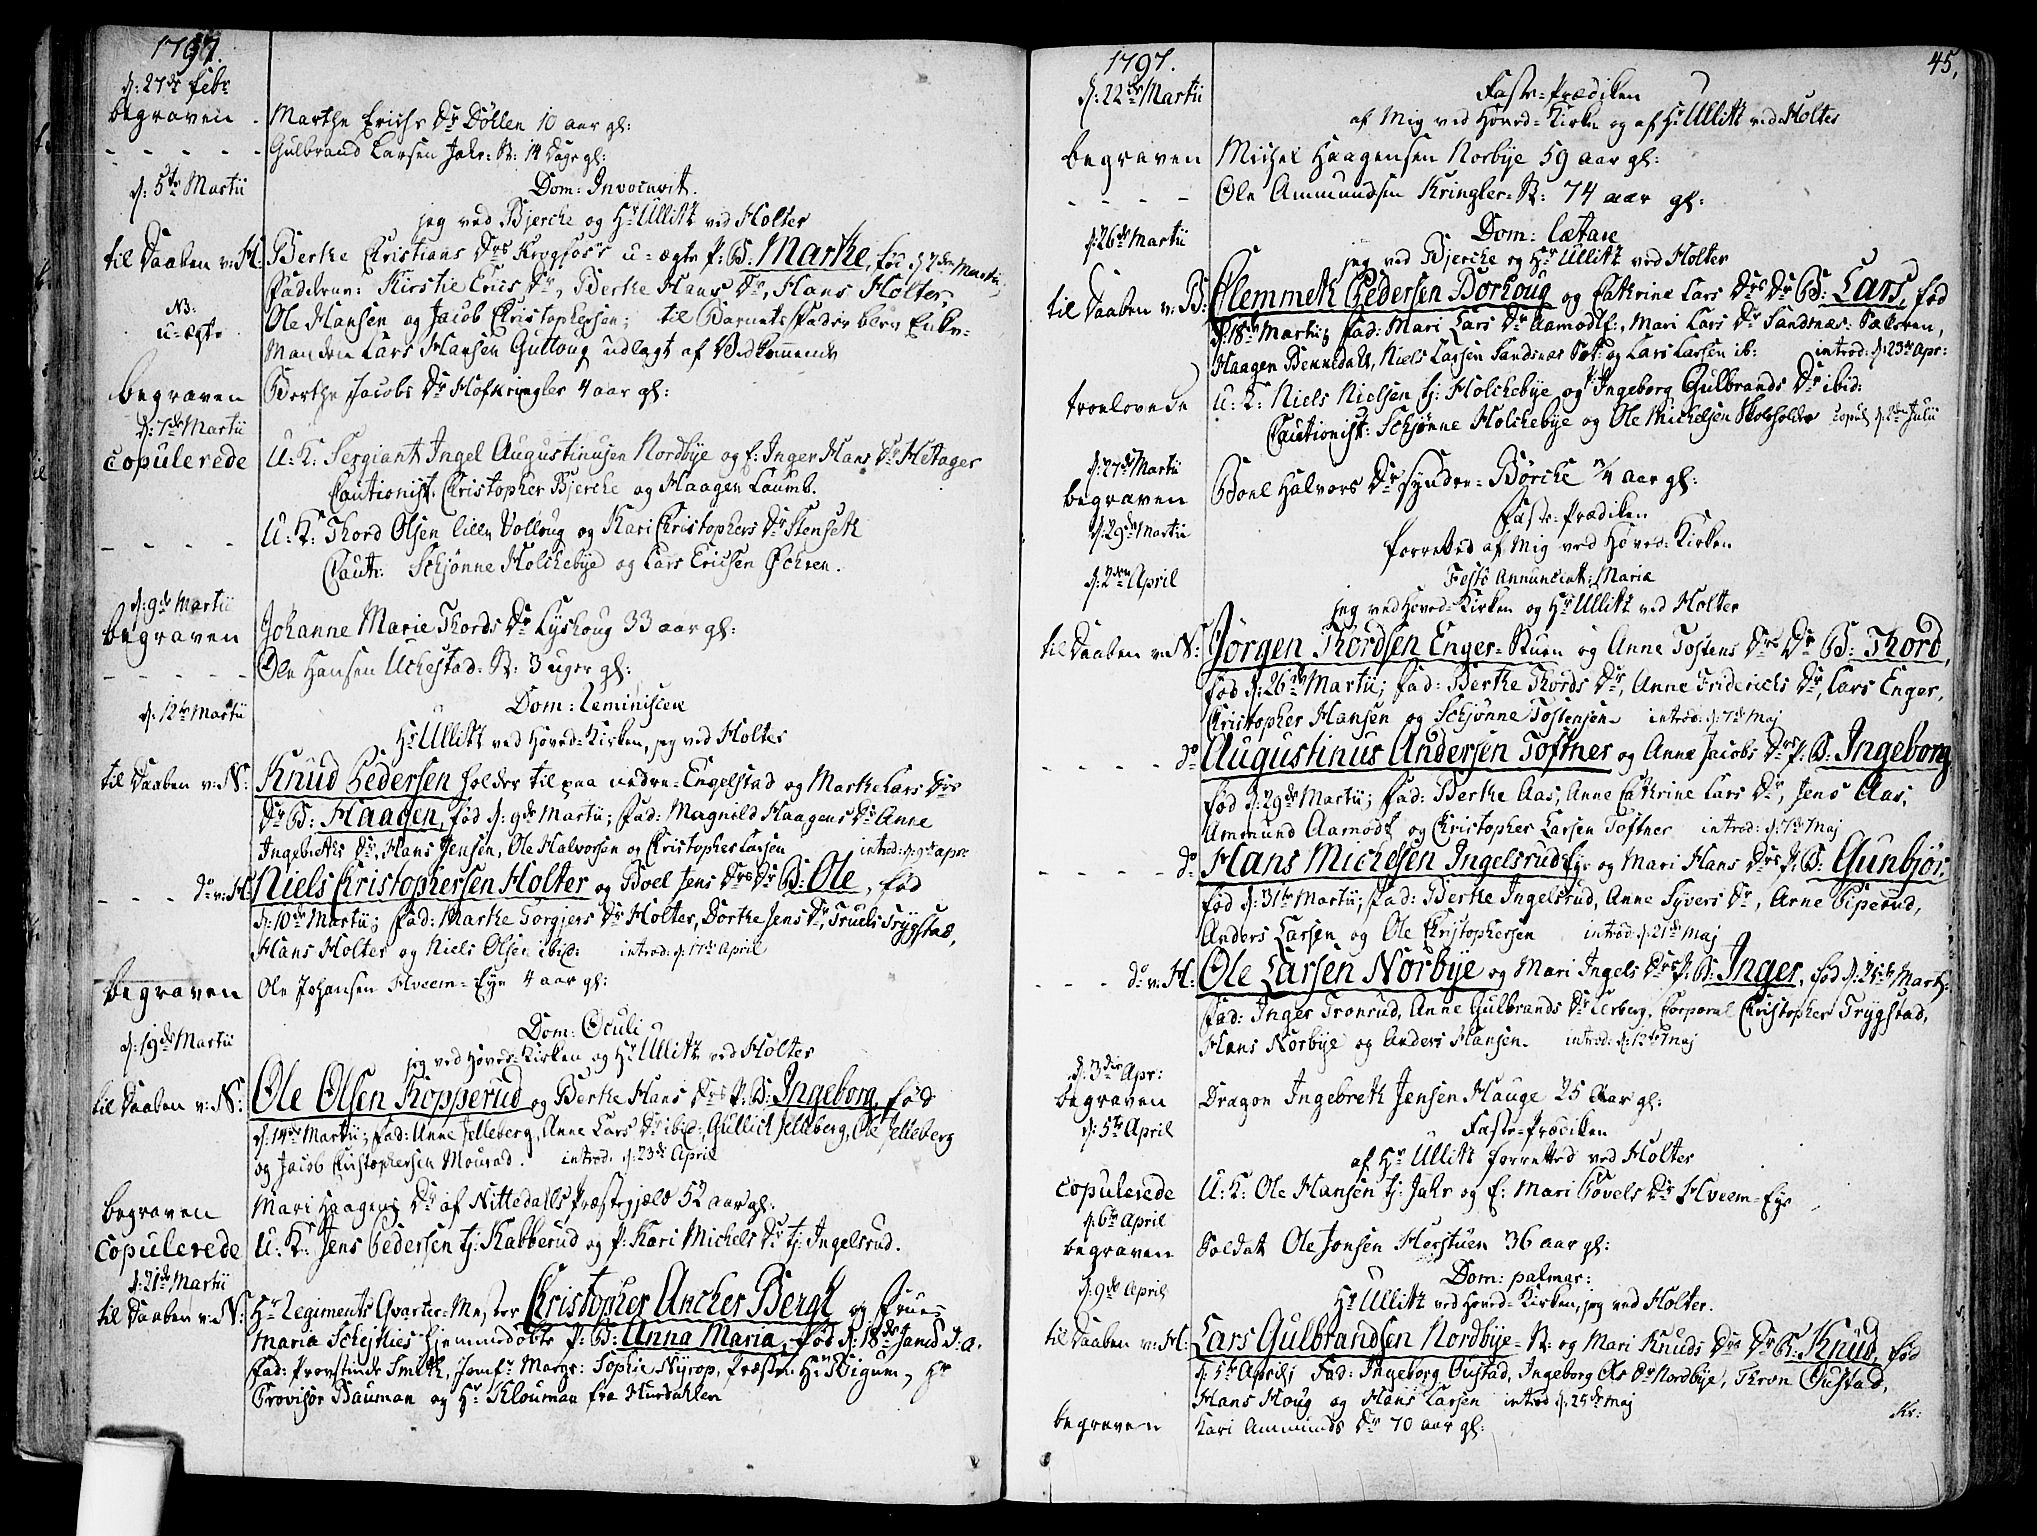 1797.
d: 27de Febr
begraven - Marthe Erichs Dr Döllen 10 aar gl:
- - - - - Gulbrand Larsen Jahr: St: 14 Dage gl:
d: 5te Martii Dom: Invocavit.
jeg ved Bjercke og Hr Ullitz ved Holter
til Daaben v: H. Berthe Christians Drs Krogfoss u-ægte p: B. Marthe, fød d 2den Martii;
Faddere: Kirstie Erics Dr, Berthe Hans Dr, Hans Holter,
NB: u-ægte Ole Hansen og Jacob Christophersen; til Barnets Fader blev Enke-
Manden Lars Hansen Guttoug udlagt af Vedkommende
begraven Berthe Jacobs Dr Hofkringler 4 aar gl:
d: 7de Martii
copulerede U: K: Sergiant Ingel Augustinusen Nordbye og f: Inger Hans Dr Hetager
Cautionist. Christopher Bjercke og Haagen Laumb.
- - - - U: K: Thord Olsen lille Volloug og Kari Christophers Dr Stenseth
Caut: Schjønne Holckebye og Lars Ericsen Ochren.
d: 9de Martii
begraven Johanne Marie Thords Dr Lyshoug 33 aar gl:
- - - - - Ole Hansen Uckestad: St: 3 uger gl:
d: 12te Martii Dom: Reminiscere
Hr Ullitz ved Hoved-Kirken, jeg ved Holter
til Daaben v: N: Knud Pedersen holder til paa nedre-Engelstad og Marthe Lars Drs
Dr B: Haagen, fød d: 9de Martii; Fad: Magnild Haagens Dr Anne
Ingebreths Dr, Hans Jensen, Ole Halvorsen og Christopher Larsen introd: d: 9de apr:
- - - do v: H. Niels Christophersen Holter og Boel Jens Drs Dr B: Ole, fød
d: 10de Martii; Fad: Marthe Torgjers Dr Holter, Dorthe Jens Dr, Truels Trygstad,
Hans Holter og Niels Olsen ibid: introd: d: 17de April
begraven Ole Johansen Hveem-Eye 4 aar gl:
d: 19de Martii Dom: Oculi
jeg ved Hoved-Kirken og Hr Ullitz ved Holter
til Daaben v: N: Ole Olsen Kopperud og Berthe Hans Drs P: B: Ingeborg, fød
d: 14de Martii; Fad: Anne Jelleberg, Anne Lars Dr ibid:, Gullich Jelleberg, Ole Jelleberg
og Jacob Christophersen Mourad. introd. d: 23de April
begraven Mari Haagens Dr af Nittedalls Præstegjæld 52 aar gl:
copulerede U: K: Jens Pedersen tj: Kabberud og P: Kari Michels Dr tj: Ingelsrud.
d: 21de Martii
til Daaben v: N: Hr Regiments Qvarteer-Mester Christopher Ancher Bergh og Frue
Maria Schejtlies hjemmedøbte P: B: Anna Maria, fød d: 18de Janu: J: a.
Fad: Provstinde Smith, Jomfr: Margr: Sophie Nyrop, Præsten Hr Bigum, Hr
Provisor Bauman og Hr Klouman fra Hurdahlen
45.
1797.
d: 22de Martii Faste-Prædiken
af Mig ved Hoved-Kirken og af Hr Ullitz ved Holter
begraven Michel Haagensen Norbye 59 aar gl:
- - - - Ole Ammundsen Kringler-St: 74 aar gl:
d: 26de Martii Dom: Lætare
jeg ved Bjercke og Hr Ullitz ved Holter
til Daaben v: B: Clemmeth Pedersen Borhoug og Cathrine Lars Drs Dr B: Lars, fød
d: 18de Martii; Fad: Mari Lars Dr Aamodt:, Mari Lars Dr Sandsnæs: Sætren,
Haagen Bennedalt, Niels Larsen Sandsnæs Sæt: og Lars Larsen ib: introd: d: 23de Apr:
troelovede U: K: Niels Nielsen tj: Holckebye og P: Ingeborg Gulbrands Dr ibid:
Cautionist: Schjønne Holckebye og Ole Michelsen Skolholder copul d: Julii
d: 27de Martii
begraven Boel Halvors Dr Syndre-Børcke 1/4 aar gl:
d: 29de Martii Faste-Prædiken
forretted af Mig ved Hoved-Kirken
d: 2den April Festo Annunciat: Mariæ
jeg ved Hoved-Kirken og Hr Ullitz ved Holter
til Daaben v: N: Jørgen Thordsen Enger-Stuen og Anne Tostens Drs Dr B: Thord,
fød d: 26de Martii; Fad: Berthe Thords Dr, Anne Friderichs Dr, Lars Enger,
Christopher Hansen og Schjønne Tostensen. introd: d: 7de Maj
- - - - do Augustinus Andersen Toftner og Anne Jacobs Drs P: B: Ingeborg
fød d: 29de Martii; Fad: Berthe Aas, Anne Cathrine Lars Dr, Jens Aas,
Ammund Aamodt og Christopher Larsen Toftner introd: d: 7de Maj
- - - - do Hans Michelsen Ingelsrud Eye og Mari Hans Drs P: B: Gunbjør,
fød d: 31te Martii; Fad: Berthe Ingelsrud, Anne Syvers Dr, Arne Piperud,
Anders Larsen og Ole Christophersen introd: d: 21de Maj
- - - do v: H: Ole Larsen Norbye og Mari Ingels Drs P: B: Inger, fød d: 25de Marts:
Fad: Inger Tronrud, Anne Gulbrands Dr Lerberg, Corporal Christopher Trygstad,
Hans Norbye og Anders Hansen. introd: d: 12te Maj
d: 3die Apr:
begraven Dragon Ingebreth Jensen Hauge 25 Aar gl:
d: 5te April Faste-Prædiken
af Hr Ullitz forretted ved Holter
copulerede U: K: Ole Hansen tj: Jahr og f: Mari Povels Dr Hveem-Eye
d: 6te April
begraven Soldat Ole Jonsen Herstuen 36 aar gl:
d: 9de April Dom: palmar:
Hr Ullitz ved Hoved-Kirken, jeg ved Holter.
til Daaben v: H: Lars Gulbrandsen Nordbye-St: og Mari Knuds Drs Dr B: Knud, fød
d: 5te April; Fad: Ingeborg Oustad, Ingeborg Ols Dr Nordbye, Thron Oustad,
Hans Houg og Hans Larsen introd d: 25de Maj
begraven Kari Ammunds Dr 70 aar gl:
Kr: